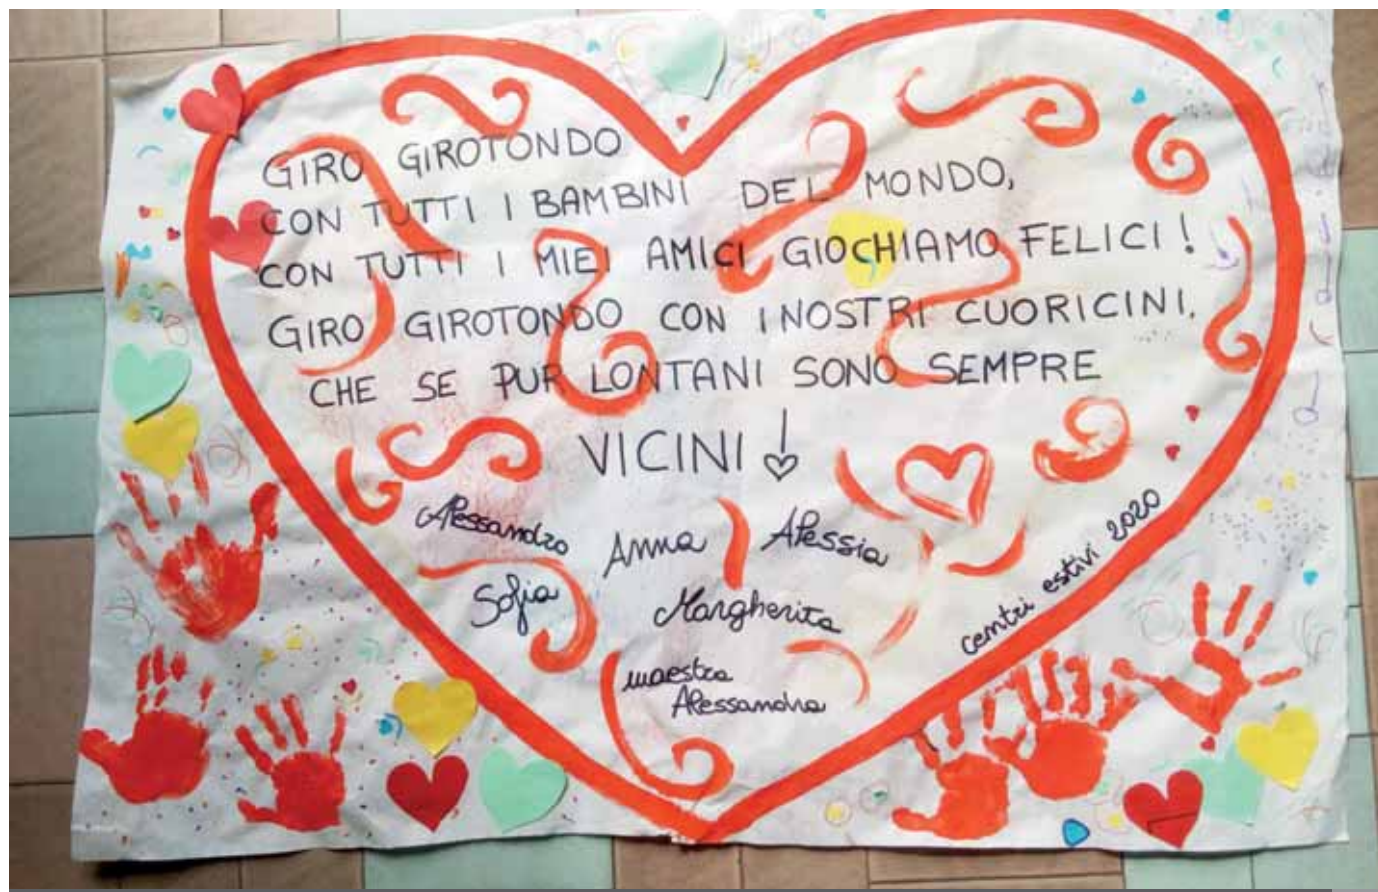 GIRO GIROTONDO
CON TUTTI I BAMBINI DEL MONDO,
CON TUTTI I MIEI AMICI GIOCHIAMO FELICI!
GIRO GIROTONDO CON I NOSTRI CUORICINI,
CHE SE PUR LONTANI SONO SEMPRE
VICINI!
Alessandro Anna Alessia
Sofia Margherita
maestra
Alessandra
centri estivi 2020